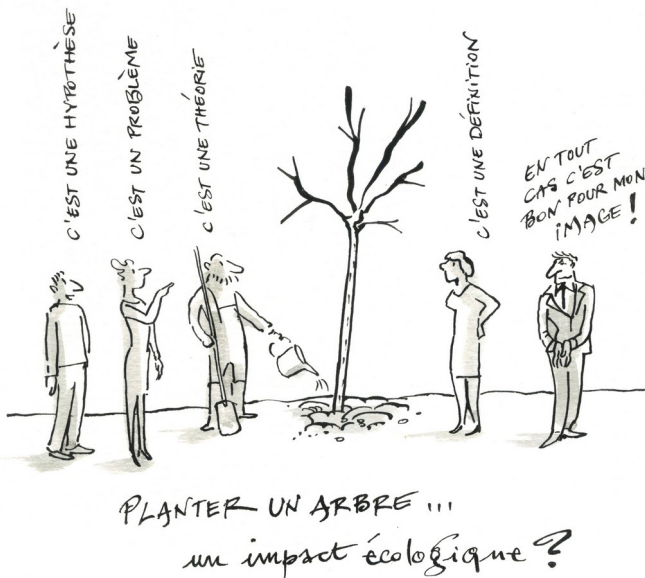 C'EST UNE HYPOTHÈSE
C'EST UN PROBLÈME
C'EST UNE THÉORIE
C'EST UNE DÉFINITION
EN TOUT
CAS C'EST
BON POUR MON
IMAGE !
PLANTER UN ARBRE ...
un impact écologique ?